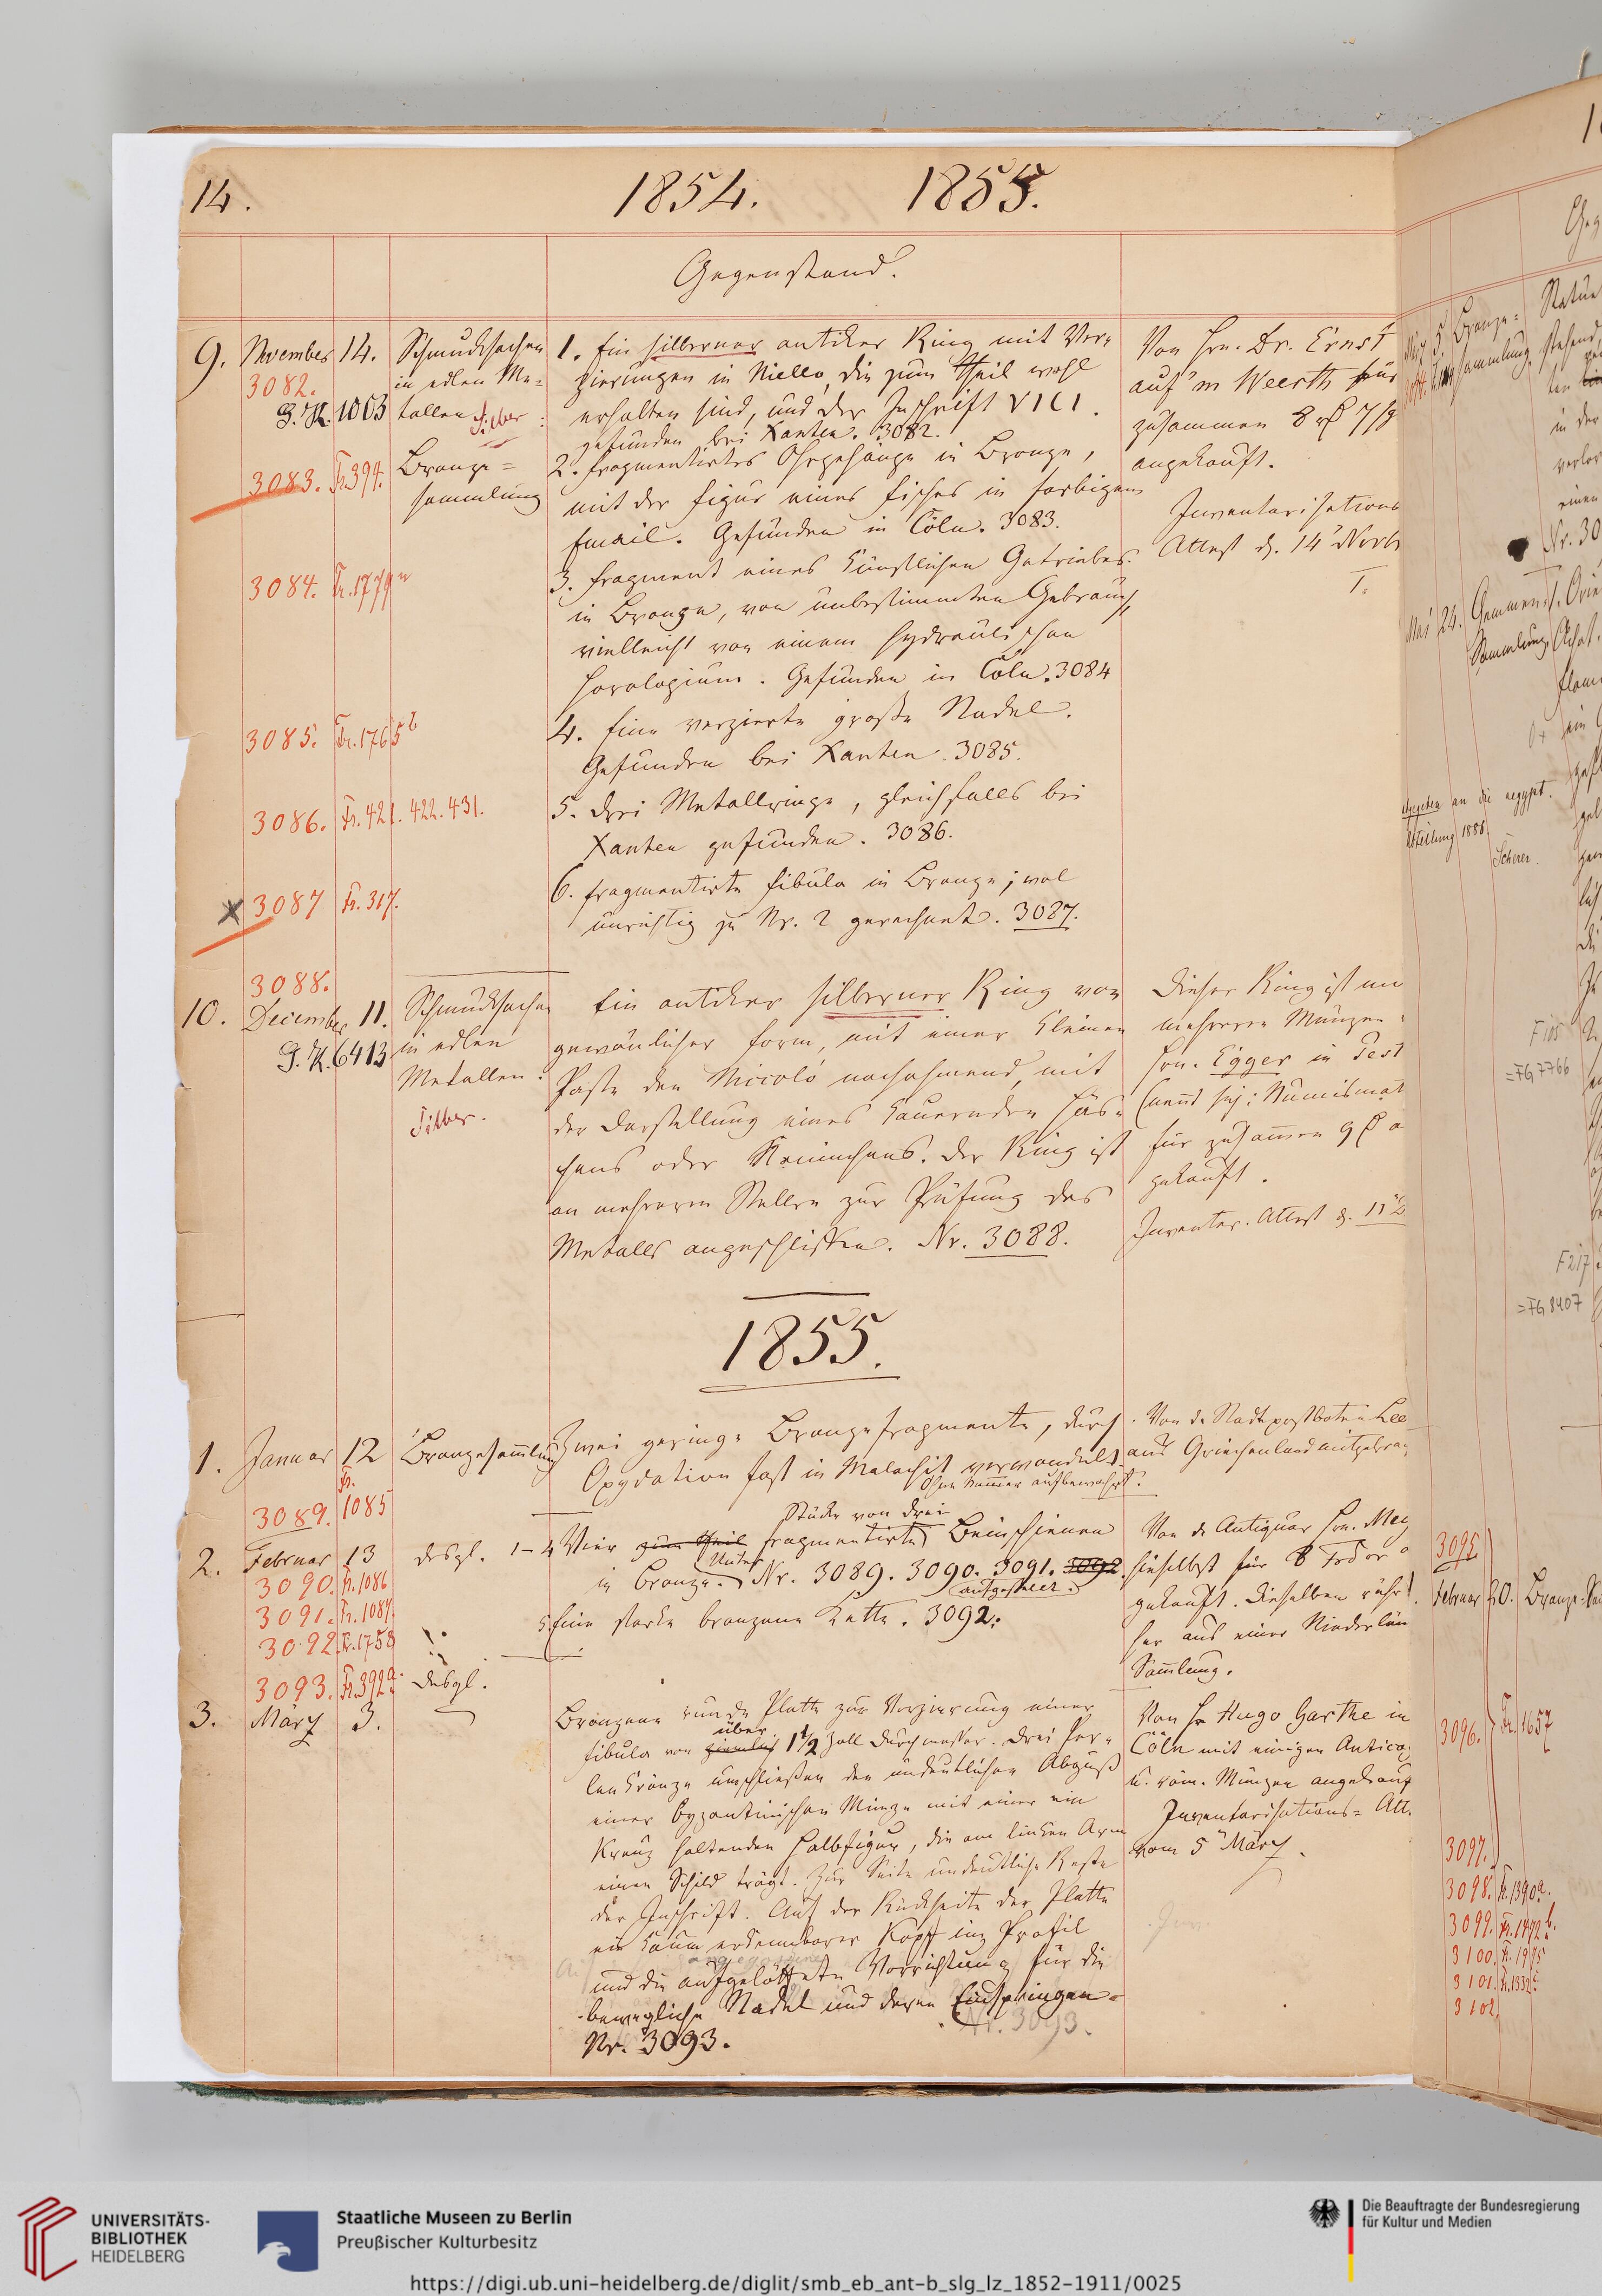 14.
1854. 1855.
Gegenstand.
9. November 14. Schmucksachen
3082.
in edlen Me=
G. K. 1003 tallen Silber
3083. Fr. 394. Bronze=
sammlung
3084. Fr. 1779
3085. Fr. 1765
3086. Fr. 421. 422. 431.
3087 Fr. 317.
1. Ein silberner antiker Ring mit Ver=
zierungen in Niello, die zum Theil wohl
erhalten sind, und der Inschrift VICI.
gefunden bei Xanten. 3082.
2. fragmentirtes Ohrgehänge in Bronze,
mit der Figur eines Fisches in farbigem
Email. Gefunden in Cöln. 3083.
3. Fragment eines künstlichen Getriebes
in Bronze, von unbestimmtem Gebrauch,
vielleicht von einem hydraulischen
Horologium. Gefunden in Cöln. 3084
4. Eine verzierte große Nadel.
Gefunden bei Xanten. 3085.
5. Drei Metallringe, gleichfalls bei
Xanten gefunden. 3086.
6. fragmentirte Fibula in Bronze; wol
unrichtig zu Nr. 2 gerechnet. 3087.
Von Hrn. Dr. Ernst
auf'm Weerth für
zusammen 8
angekauft.
Inventarisations
Attest d. 14 Novbr
T.
3088.
10. December 11. Schmucksachen
G. K. 6413 in edlen
Metallen.
Silber.
Ein antiker silberner Ring von
gewönlicher Form, mit einer kleinen
Paste den Niccolo nachahmend, mit
der Darstellung eines kauernden Häs=
chens oder Kaninchens. Der Ring ist
an mehreren Stellen zur Prüfung des
Metalls angeschliffen. Nr. 3088.
Dieser Ring ist
mehreren Münzen
Hrn. Egger in Pest
Numismat
für zusammen 9
gekauft.
Inventar. Attest d. 11
1855.
1. Januar 12 Bronzesammlung
Fr.
3089. 1085
Zwei geringe Bronzefragmente, durch
Oxydation fast in Malachit verwandelt.
Ohne Nummer aufbewahrt.
Von d. Stadtpostboten
aus Griechenland mitgebra
2. Februar 13 desgl.
3090. Fr. 1086
3091. Fr. 1087.
3092. Fr. 1758
Stücke von drei
1-4 Vier zum Theil fragmentirte Beinschienen
in Bronze. Unter Nr. 3089. 3090. 3091. 3092.
aufgestellt.
5. Eine starke bronzene Kette. 3092.
Von d. Antiquar Hrn.
hieselbst für 8 Frd'or
gekauft. Dieselben rühr
her aus einer Niederlän
Sammlung.
3093. Fr. 392a. desgl.
3. März 3.
Bronzene runde Platte zur Verzierung einer
über
Fibula von ziemlich 1½ Zoll Durchmesser. Drei Per=
lenkränze umschließen den undeutlichen Abguß
einer byzantinischen Münze mit einer ein
Kreuz haltenden Halbfigur, die am linken Arm
einen Schild trägt. Zur Seite undeutliche Reste
der Inschrift. Auf der Rückseite der Platte
ein kaum erkennbarer Kopf im Profil
und die aufgelöthete Vorrichtung für die
bewegliche Nadel und deren Einspringen.
Nr. 3093.
Nr. 3093.
Von Hr Hugo Garthe in
Cöln mit einigen
u. röm. Münzen angekauf
Inventarisations= Att.
vom 5 März.
März 5 Bronze=
sammlung
Nr. 30
Mai 24. Gemmen=
Sammlung
Achat.
an die aegypt.
Abteilung 1886
Scherer.
F 105
=FG 7766
F 217
=FG 8407
3095
Februar 20. Bronze
3096. Fr. 1657
3097.
3098. Fr. 1390a.
3099. Fr. 1472b.
3100. Fr. 1975
3101. Fr. 1332
3102
UNIVERSITÄTS-
BIBLIOTHEK
HEIDELBERG
Staatliche Museen zu Berlin
Preußischer Kulturbesitz
Die Beauftragte der Bundesregierung
für Kultur und Medien
https://digi.ub.uni-heidelberg.de/diglit/smb_eb_ant-b_slg_lz_1852-1911/0025